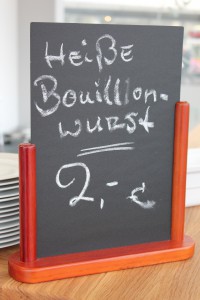 Heiße
Bouilllon-
wurst
2,- €